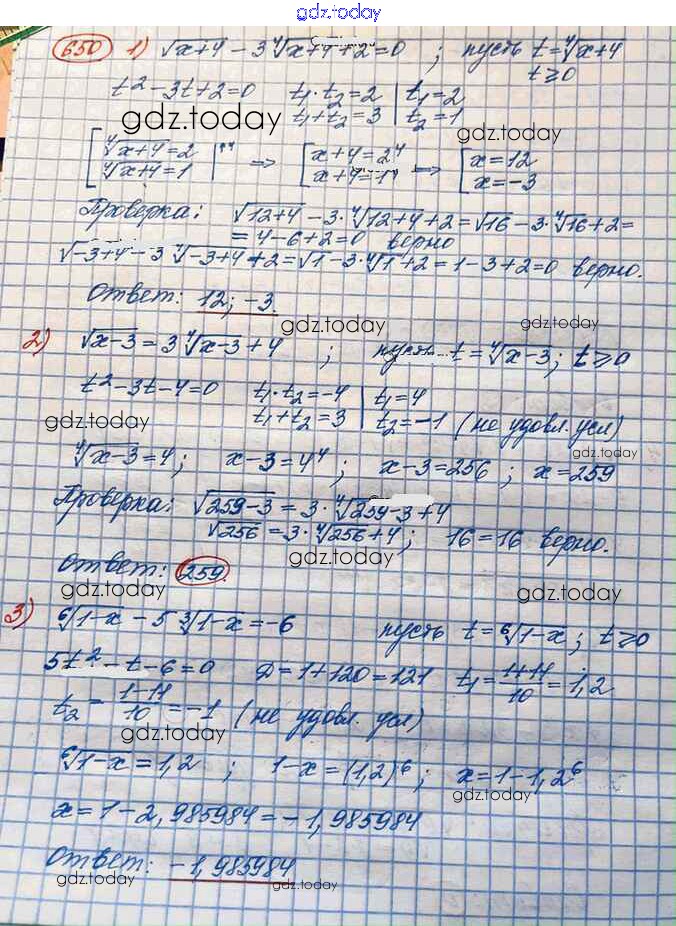 gdz.today
650 1) √x+4 - 3 ∜x+4 + 2 = 0 ; пусть t = ∜x+4
t ≥ 0
t² - 3t + 2 = 0 t₁·t₂ = 2 | t₁ = 2
t₁ + t₂ = 3 | t₂ = 1
gdz.today gdz.today
[ ∜x+4 = 2 ⇒ [ x+4 = 2⁴ ⇒ [ x = 12
∜x+4 = 1 x+4 = 1⁴ x = -3
Проверка: √12+4 - 3·∜12+4 + 2 = √16 - 3·∜16 + 2 =
= 4 - 6 + 2 = 0 верно
√-3+4 - 3 ∜-3+4 + 2 = √1 - 3·∜1 + 2 = 1 - 3 + 2 = 0 верно.
Ответ: 12; -3
gdz.today gdz.today
2) √x-3 = 3 ∜x-3 + 4 ; пусть t = ∜x-3 ; t ≥ 0
t² - 3t - 4 = 0 t₁·t₂ = -4 | t₁ = 4
t₁ + t₂ = 3 | t₂ = -1 (не удовл. усл)
gdz.today gdz.today
∜x-3 = 4 ; x-3 = 4⁴ ; x-3 = 256 ; x = 259
Проверка: √259-3 = 3·∜259-3 + 4
√256 = 3·∜256 + 4 ; 16 = 16 верно.
gdz.today
Ответ: 259.
gdz.today gdz.today
3) ⁶√1-x - 5 ∛1-x = -6 пусть t = ⁶√1-x ; t ≥ 0
5t² - t - 6 = 0 D = 1 + 120 = 121 t₁ = 1+11/10 = 1,2
t₂ = 1-11/10 = -1 (не удовл. усл)
gdz.today
⁶√1-x = 1,2 ; 1-x = (1,2)⁶ ; x = 1 - 1,2⁶
gdz.today
x = 1 - 2,985984 = -1,985984
Ответ: -1,985984
gdz.today gdz.today